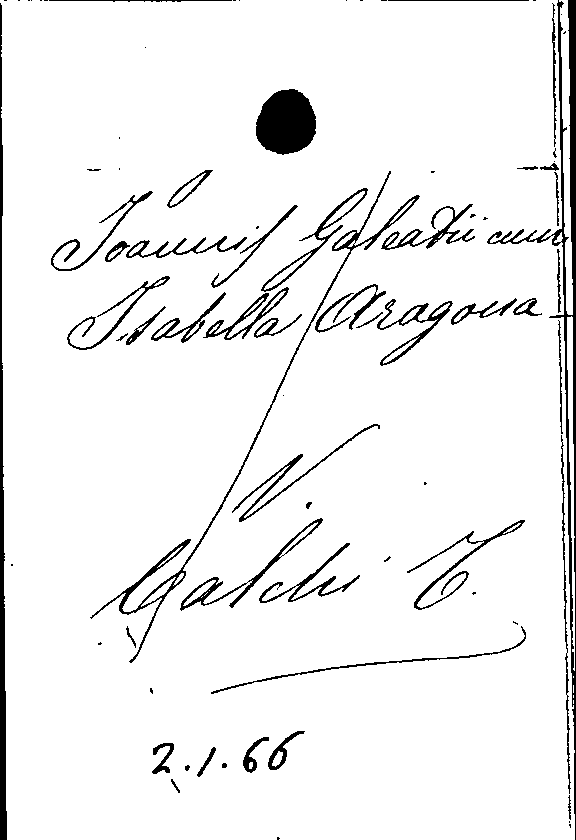 Joannis Galeatii cum
Isabella Aragona
V.
Calchi T.
2.1.66